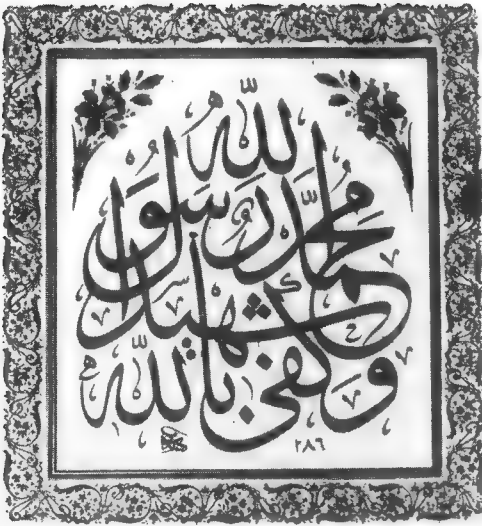 وكفى بالله شهيدا محمد رسول الله
٢٨٦